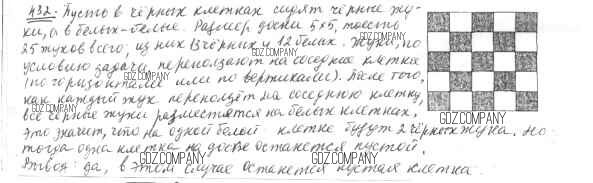 432. Пусть в чёрных клетках сидят чёрные жу-
ки, а в белых - белые. Размер доски 5х5, то есть
25 жуков всего, из них 13 чёрных и 12 белых. Жуки, по
GDZ.COMPANY
условию задачи, переползают на соседние клетки
GDZ.COMPANY
(по горизонтали или по вертикали). После того,
GDZ.COMPANY
как каждый жук переползёт на соседнюю клетку,
GDZ.COMPANY
все чёрные жуки разместятся на белых клетках.
GDZ.COMPANY
Это значит, что на одной белой клетке будут 2 чёрных жука. Но
тогда одна клетка на доске останется пустой.
GDZ.COMPANY
GDZ.COMPANY
Ответ: да, в этом случае останется пустая клетка.